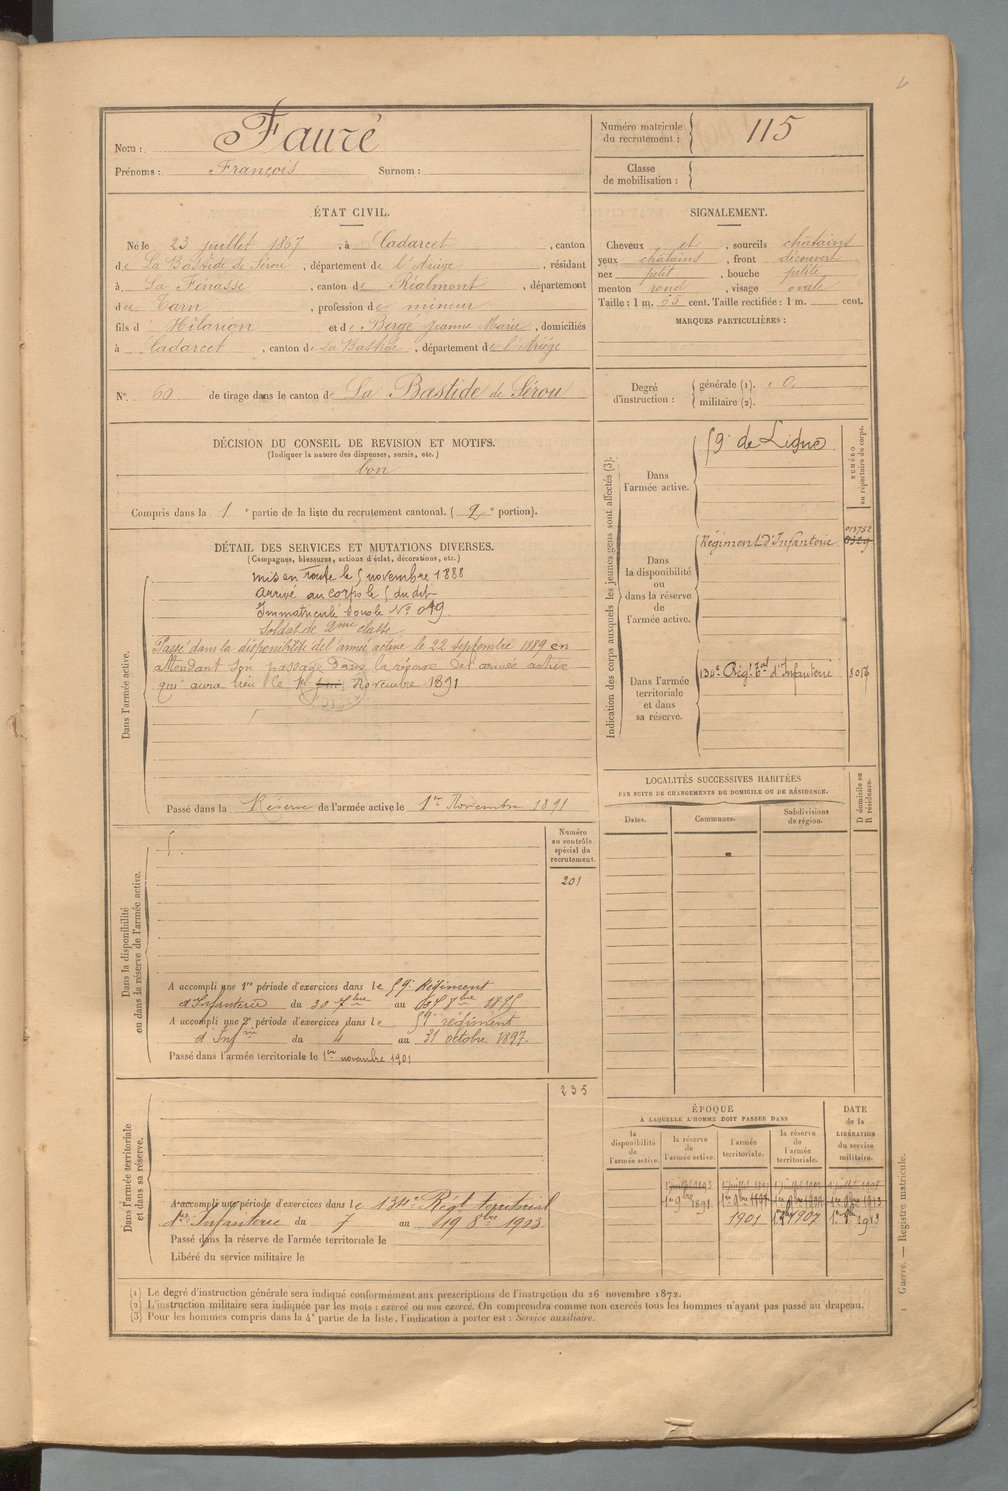 Nom : Fauré
Prénoms : François Surnom :
Numéro matricule du recrutement : 115
Classe de mobilisation :
ÉTAT CIVIL.
Né le 23 juillet 1867, à Cadarcet, canton
de La Bastide de Sérou, département de l'Ariège, résidant
à La Finasse, canton de Réalmont, département
du Tarn, profession de mineur
fils d' Hilarion et de Bergé Jeanne Marie, domiciliés
à Cadarcet, canton de La Bastide, département de l'Ariège
SIGNALEMENT.
Cheveux et, sourcils châtains
yeux châtains, front découvert
nez petit, bouche petite
menton rond, visage ovale
Taille : 1 m. 55 cent. Taille rectifiée : 1 m. cent.
MARQUES PARTICULIÈRES :
N° 60 de tirage dans le canton de La Bastide de Sérou
Degré d'instruction : générale (1). 0.
militaire (2).
DÉCISION DU CONSEIL DE REVISION ET MOTIFS.
(Indiquer la nature des dispenses, sursis, etc.)
bon
Compris dans la 1e partie de la liste du recrutement cantonal. (2e portion).
DÉTAIL DES SERVICES ET MUTATIONS DIVERSES.
(Campagnes, blessures, actions d'éclat, décorations, etc.)
Dans l'armée active.
mis en route le 5 novembre 1888
arrivé au corps le 5 dudit
Immatriculé sous le N°
Soldat de 2me classe
Passé dans la disponibilité de l'armée active le 22 septembre 1889 en
attendant son passage dans la réserve de l'armée active
qui aura lieu le 1er Novembre 1891
Passé dans la Réserve de l'armée active le 1er Novembre 1891
Indication des corps auxquels les jeunes gens sont affectés (3).
NUMÉRO au répertoire du corps.
Dans l'armée active.
59e de Ligne
Dans la disponibilité ou dans la réserve de l'armée active.
Régiment d'Infanterie
Dans l'armée territoriale et dans sa réserve.
134e Régt Tal d'Infanterie
LOCALITÉS SUCCESSIVES HABITÉES
PAR SUITE DE CHANGEMENTS DE DOMICILE OU DE RÉSIDENCE.
Dates. Communes. Subdivisions de région.
D domicile ou R résidence.
Dans la disponibilité ou dans la réserve de l'armée active.
Numéro au contrôle spécial du recrutement.
201
A accompli une 1re période d'exercices dans le 59e Régiment
d'Infanterie du 30 7bre au 8bre 1895
A accompli une 2e période d'exercices dans le 59e régiment
d'Infrie du 4 au 31 octobre 1897.
Passé dans l'armée territoriale le 1er novembre 1901
Dans l'armée territoriale et dans sa réserve.
235
A accompli une période d'exercices dans le 134e Régt territorial
d'Infanterie du 7 au 19 8bre 1903
Passé dans la réserve de l'armée territoriale le
Libéré du service militaire le
ÉPOQUE
À LAQUELLE L'HOMME DOIT PASSER DANS
la disponibilité de l'armée active.
la réserve de l'armée active.
l'armée territoriale.
la réserve de l'armée territoriale.
DATE de la LIBÉRATION du service militaire.
1er 9bre 1891
1901 1907 1913
(1) Le degré d'instruction générale sera indiqué conformément aux prescriptions de l'instruction du 26 novembre 1872.
(2) L'instruction militaire sera indiquée par les mots : exercé ou non exercé. On comprendra comme non exercés tous les hommes n'ayant pas passé au drapeau.
(3) Pour les hommes compris dans la 4e partie de la liste, l'indication à porter est : Service auxiliaire.
Guerre. — Registre matricule.